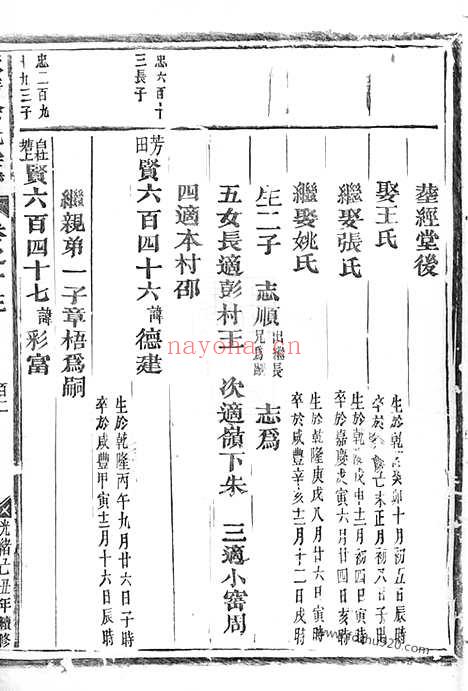 葬經堂後
娶王氏
生於乾隆癸卯十月初五日辰時
卒於 亡未正月初八日子時
繼娶張氏
生於乾隆戊申十二月初四日子時
卒於嘉慶戊寅六月廿四日亥時
繼娶姚氏
生於乾隆庚戌八月廿六日寅時
卒於咸豐辛亥十二月十二日戌時
生二子 志順 出繼長兄爲嗣 志爲
五女長適彭村王 次適嶺下朱 三適小窑周
四適本村邵
忠六百十三長子
芳田賢六百四十六諱德建
生於乾隆丙午九月廿六日子時
卒於咸豐甲寅十二月十六日辰時
繼親弟一子章梧爲嗣
忠二百九十九三子
賢六百四十七諱彩富
光緒乙丑年續修
nayona.cn